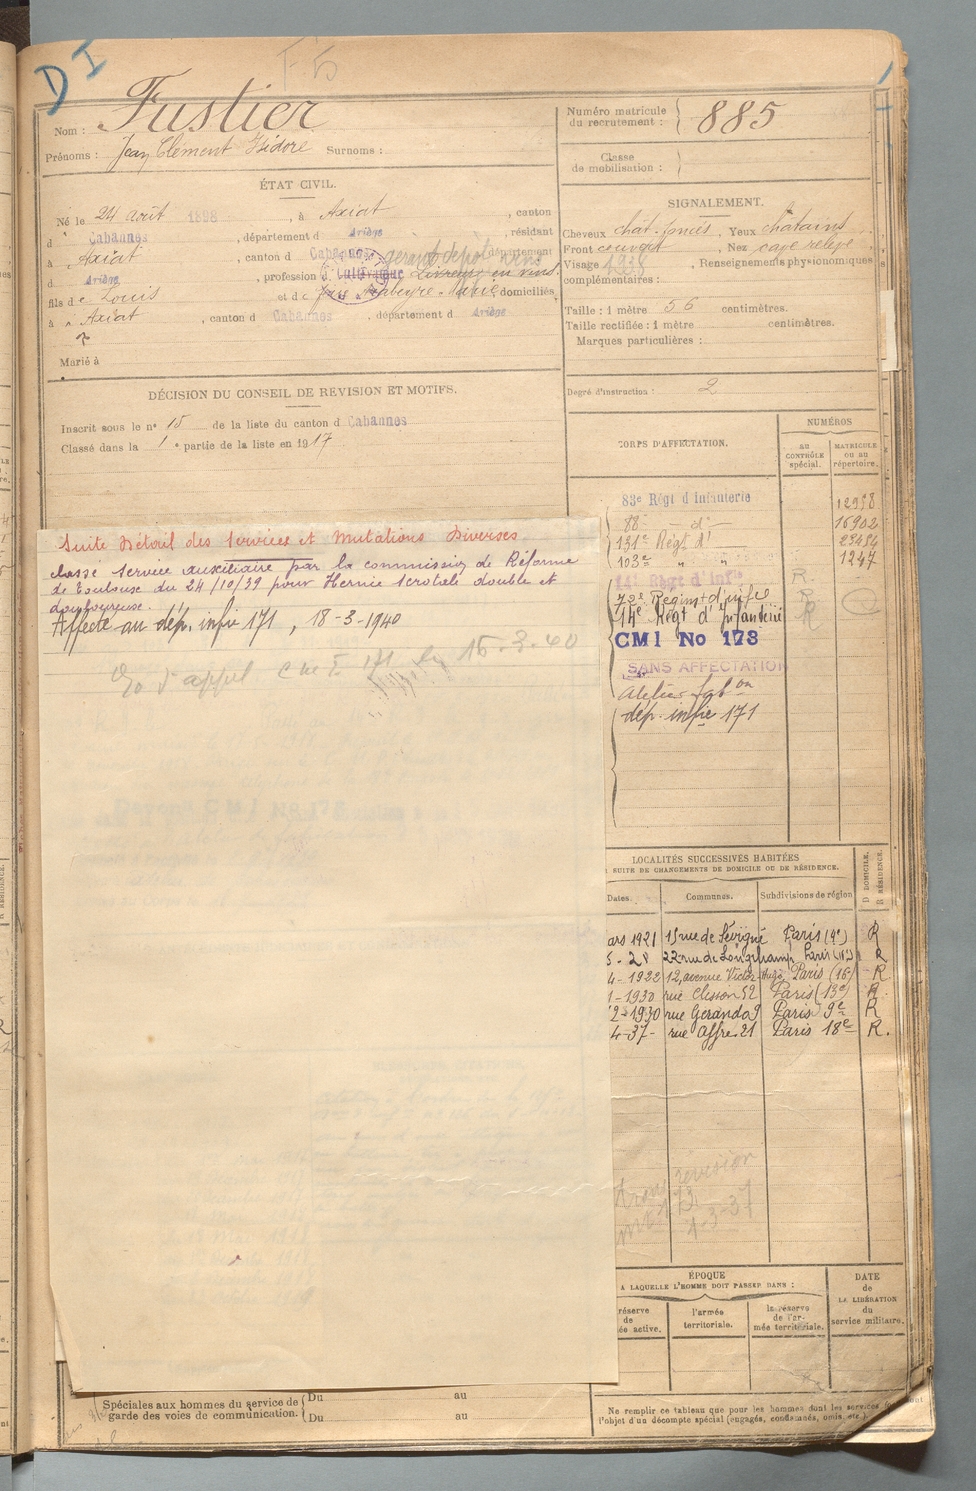 D I
F. 5
Nom : Fustier
Prénoms : Jean Clément Isidore Surnoms :
Numéro matricule du recrutement : 885
Classe de mobilisation :
ÉTAT CIVIL.
Né le 24 août 1898, à Axiat, canton
d Cabannes, département d Ariège, résidant
à Axiat, canton d Cabannes, département
d Ariège, profession d Cultivateur Livreur en vins gérant dépôt vins
fils de Louis et de Marie domiciliés
à Axiat, canton d Cabannes, département d Ariège
Marié à
SIGNALEMENT.
Cheveux chât. foncés, Yeux châtains
Front couvert, Nez cave relevé
Visage, Renseignements physionomiques
complémentaires :
Taille : 1 mètre 56 centimètres.
Taille rectifiée : 1 mètre centimètres.
Marques particulières :
Degré d'instruction : 2
DÉCISION DU CONSEIL DE REVISION ET MOTIFS.
Inscrit sous le n° 15 de la liste du canton d Cabannes
Classé dans la 1e partie de la liste en 1917
CORPS D'AFFECTATION.
NUMÉROS
AU CONTRÔLE spécial.
MATRICULE ou au répertoire.
83e Régt d'Infanterie 12958
88e — d° — 16902
131e Régt d° 22454
103e " " 1247
14e Régt d'Infie R
72e Régiment d'infie R
14e Régt d'Infanterie R
CMI No 173
SANS AFFECTATION
Atelier fabon
dép. infie 171
Suite Détail des Services et Mutations Diverses
Classé Service auxiliaire par la commission de Réforme
de Toulouse du 24/10/39 pour Hernie scrotale double et
douloureuse.
Affecté au dép. infie 171, 18-3-1940
d'appel CMI 171 15-3-40
LOCALITÉS SUCCESSIVES HABITÉES
SUITE DE CHANGEMENTS DE DOMICILE OU DE RÉSIDENCE.
Dates. Communes. Subdivisions de région D DOMICILE. R RÉSIDENCE.
ars 1921 15 rue de Sévigné Paris (4e) R
5-28 22 rue de Longchamp Paris (16e) R
4-1922 12, avenue Victor-Hugo Paris (16e) R
1-1930 rue Clisson 52 Paris (13e) R
2-1930 rue Gerando 9 Paris 9e R
4-37 rue Affre 21 Paris 18e R.
revision
1-3-37
ÉPOQUE
A LAQUELLE L'HOMME DOIT PASSER DANS :
réserve de ée active.
l'armée territoriale.
la réserve de l'armée territoriale.
DATE de LA LIBÉRATION du service militaire.
Spéciales aux hommes du service de garde des voies de communication.
Du au
Du au
Ne remplir ce tableau que pour les hommes dont les services
l'objet d'un décompte spécial (engagés, condamnés, omis, etc.)